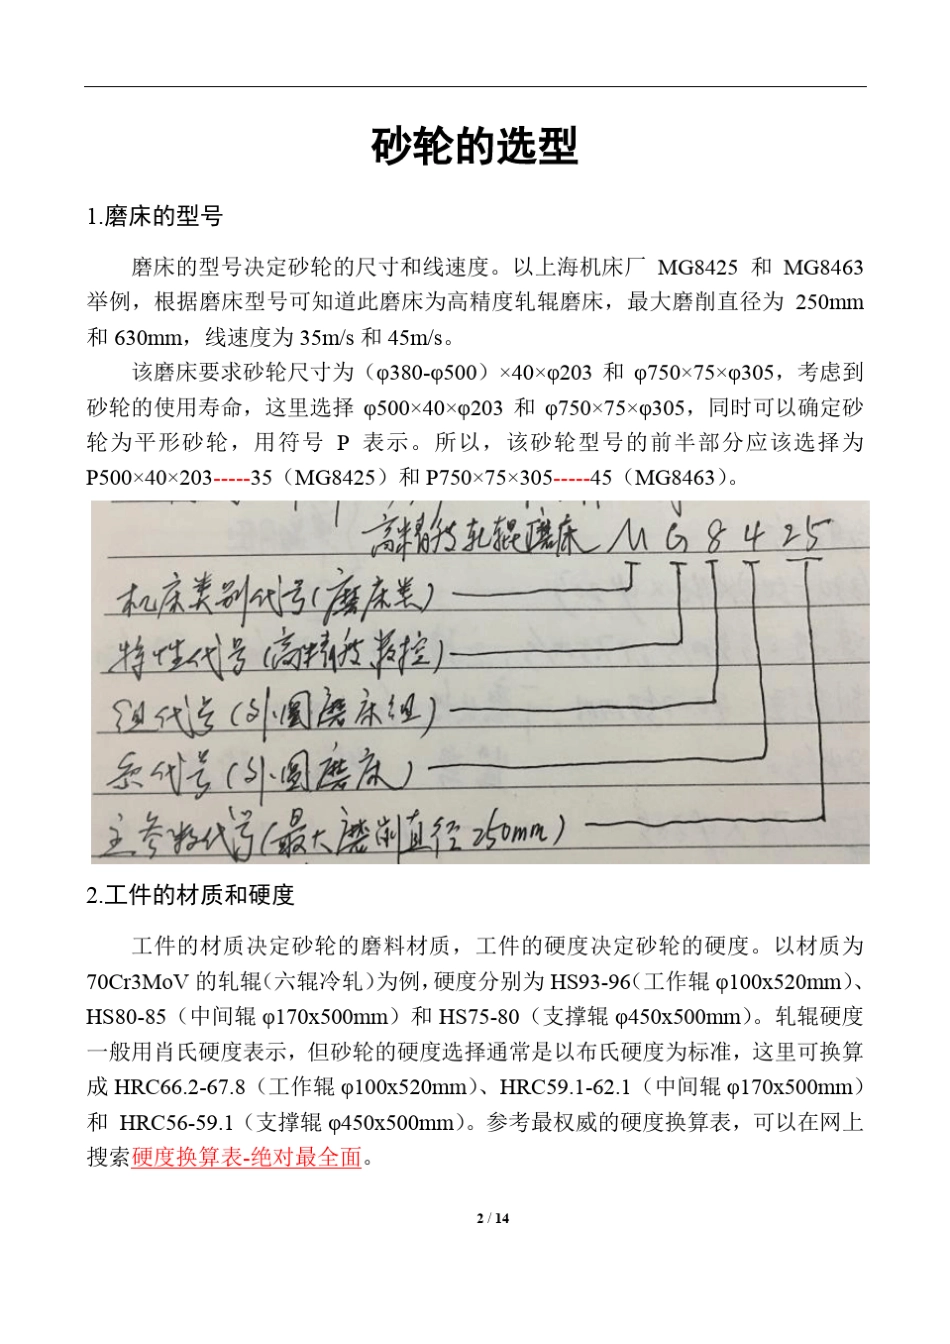 砂轮的选型
1.磨床的型号
磨床的型号决定砂轮的尺寸和线速度。以上海机床厂 MG8425 和 MG8463
举例，根据磨床型号可知道此磨床为高精度轧辊磨床，最大磨削直径为 250mm
和 630mm，线速度为 35m/s 和 45m/s。
该磨床要求砂轮尺寸为（φ380-φ500）×40×φ203 和 φ750×75×φ305，考虑到
砂轮的使用寿命，这里选择 φ500×40×φ203 和 φ750×75×φ305，同时可以确定砂
轮为平形砂轮，用符号 P 表示。所以，该砂轮型号的前半部分应该选择为
P500×40×203-----35（MG8425）和 P750×75×305-----45（MG8463）。
高精度轧辊磨床 M G 8 4 25
机床类别代号(磨床类)
特性代号(高精度数控)
组代号(外圆磨床组)
系代号(外圆磨床)
主参数代号(最大磨削直径250mm)
2.工件的材质和硬度
工件的材质决定砂轮的磨料材质，工件的硬度决定砂轮的硬度。以材质为
70Cr3MoV 的轧辊（六辊冷轧）为例，硬度分别为 HS93-96（工作辊 φ100x520mm）、
HS80-85（中间辊 φ170x500mm）和 HS75-80（支撑辊 φ450x500mm）。轧辊硬度
一般用肖氏硬度表示，但砂轮的硬度选择通常是以布氏硬度为标准，这里可换算
成 HRC66.2-67.8（工作辊 φ100x520mm）、HRC59.1-62.1（中间辊 φ170x500mm）
和 HRC56-59.1（支撑辊 φ450x500mm）。参考最权威的硬度换算表，可以在网上
搜索硬度换算表-绝对最全面。
2 / 14